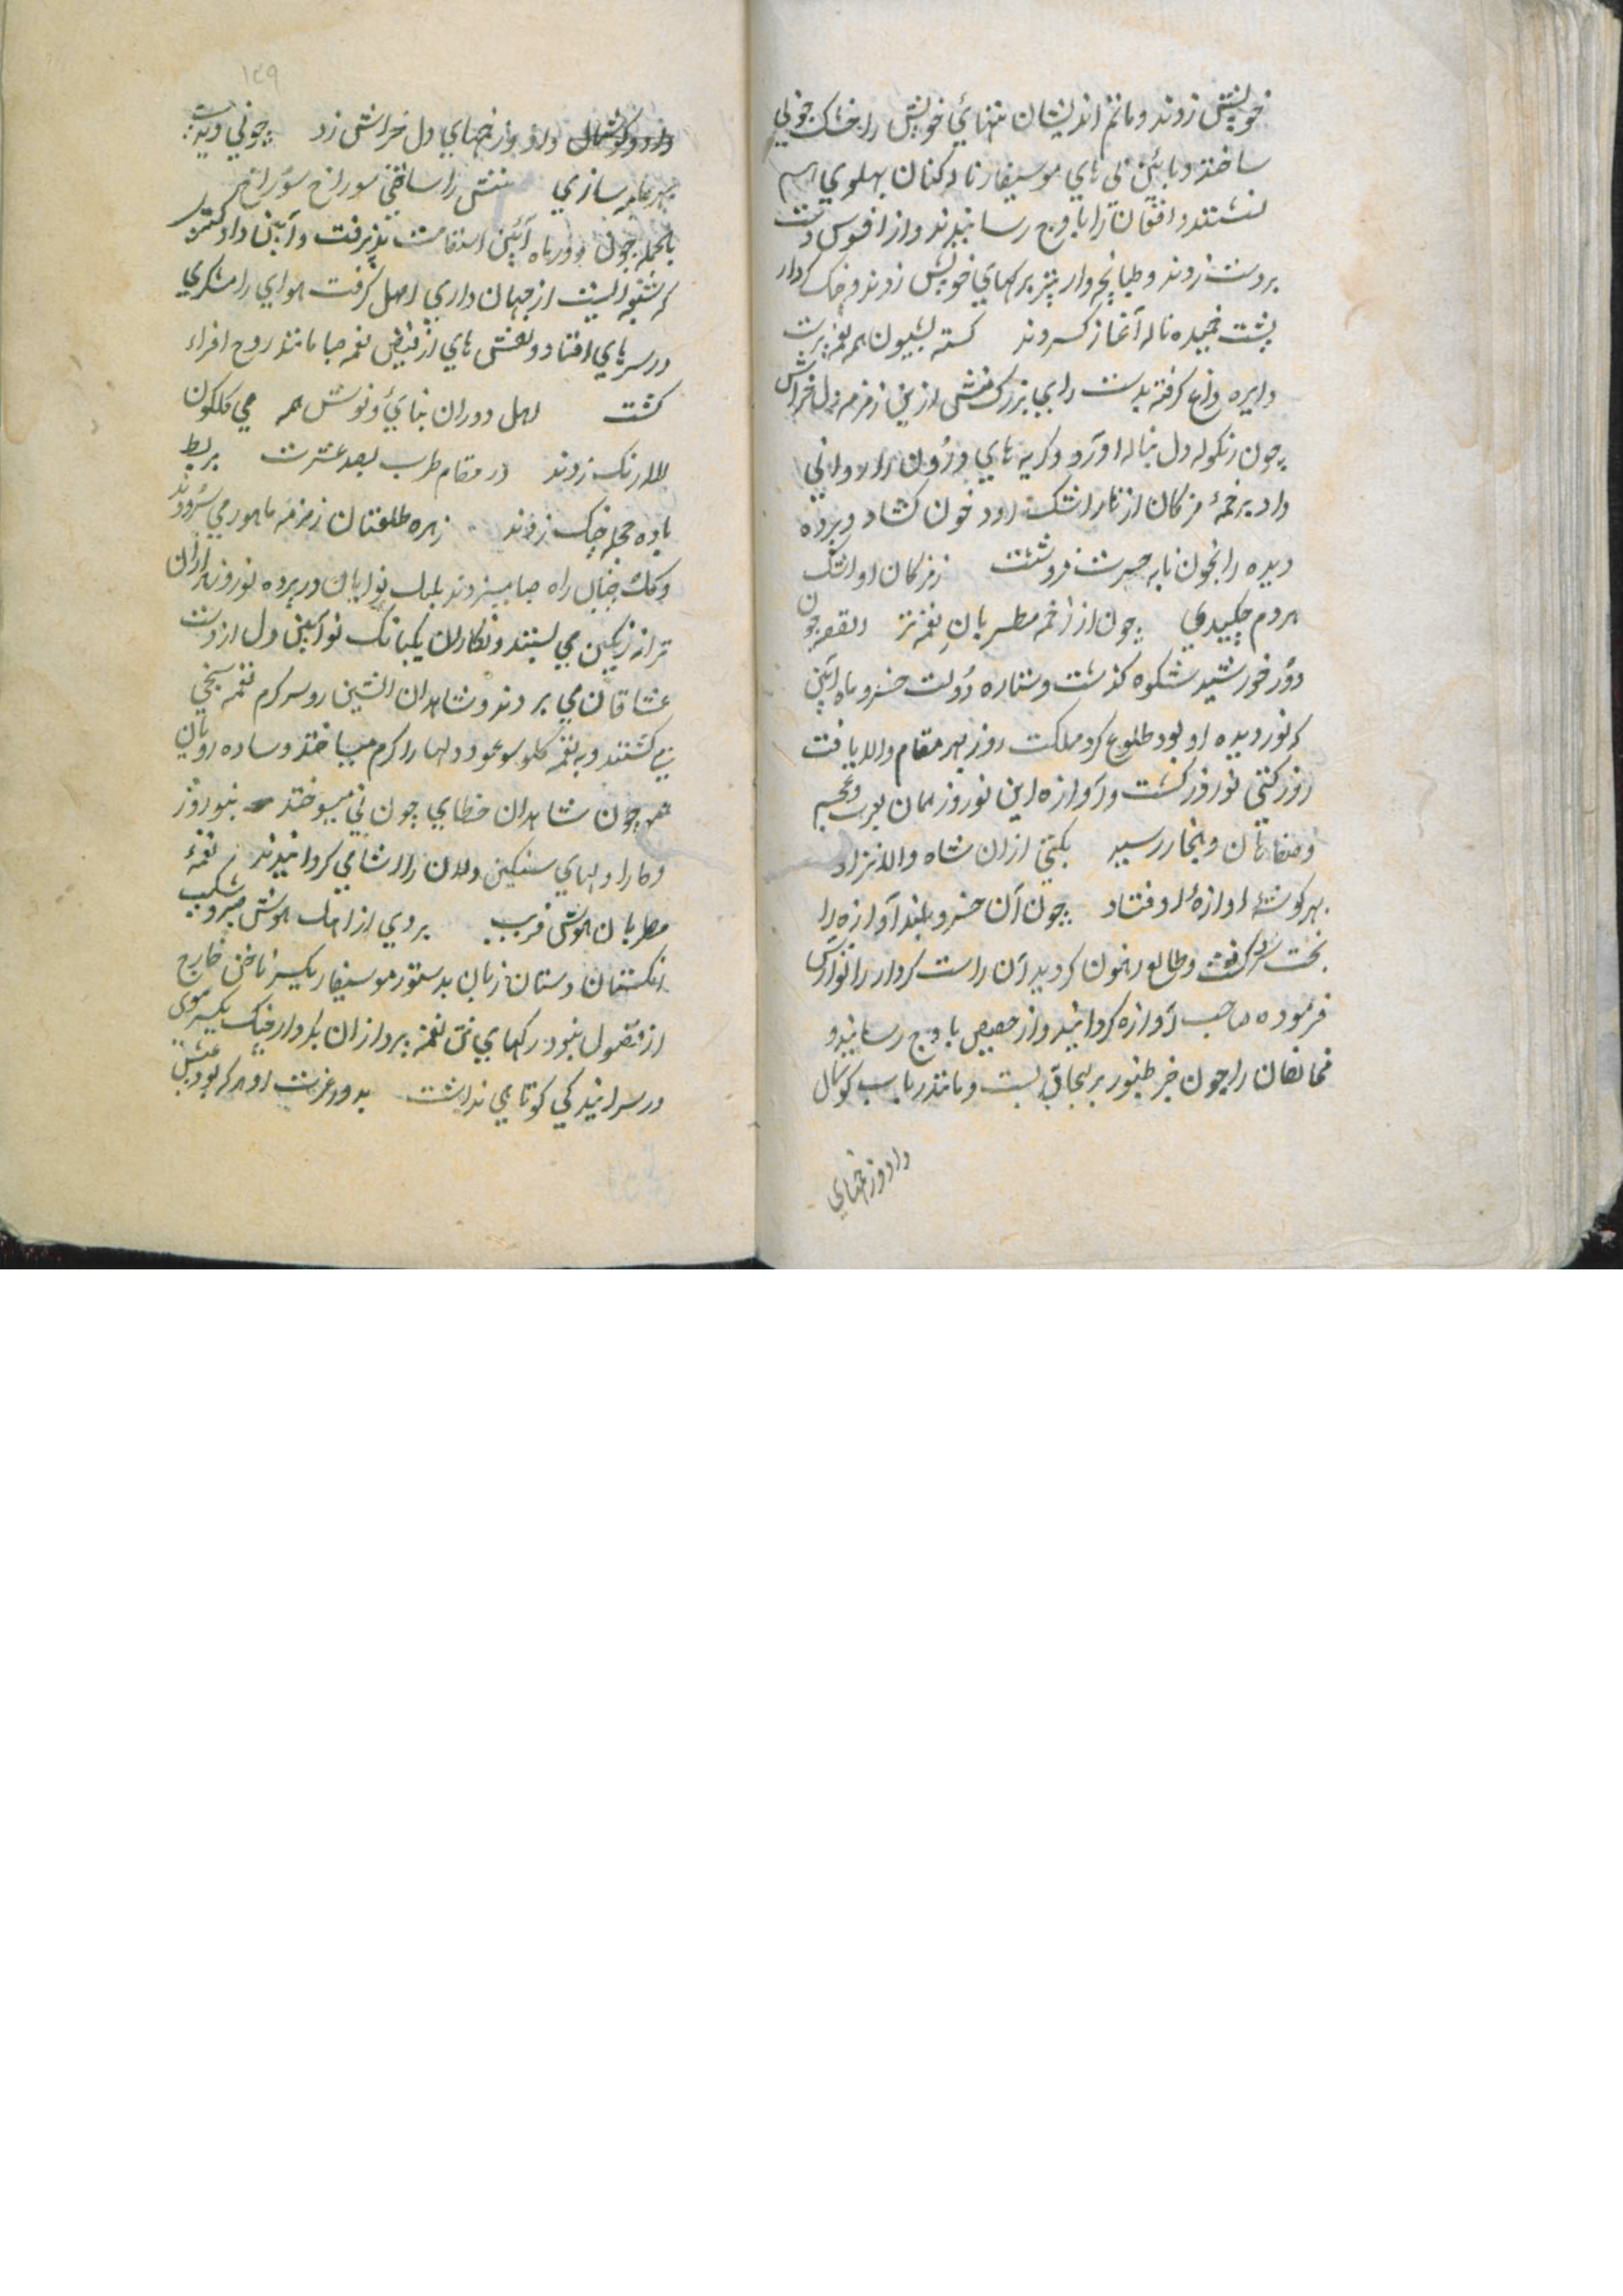 خویش زدند و ماتم اندیشان تنهائ خویش را خشک چونی
ساختند و بآئین نی های موسیقار ناله کنان بپهلوی هم
نشستند و افغان را باوج رسانیدند و از افسوس دست
بر دست زدند و طپانچه وار بتر برکهای خویش زدند و چنک کردار
پشت خمیده ناله آغاز کردند کسته بشیون همه نغمه پرست
دایره داغ کرفته بدست رای بزرک منش ازین زمزمه دل خراش
چون زنکوله دل بناله آورد و کریه های درون را روانی
داد بزخمهٔ مژکان از تار اشک رود خون کشاد و پرده
دیده را بخون نابه حسرت فرو شست ز مژکان او اشک
هر دم چکیدی چون از زخمه مطربان نغمه تر القصه چون
دور خورشید شکوه کذشت و ستاره دولت خسرو ماه آئین
که نور دیده او بود طلوع کرد مملکت روز بهر مقام والا یافت
روز کیتی نوروز کشت و آوازه این نوروز همان بعرب و عجم
و صفاهان و بنجار رسید بکیتی ازان شاه والا نژاد
بهر کوشهٔ آوازهٔ اوفتاد چون آن خسرو بلند آوازه را
بخت کرفت و طالع رهنمون کردید آن راست کردار را نوازش
فرموده صاحب آوازه کردانید و از حضیض باوج رسانید و
مخالفان را چون خر طنبور بریجاق بست و مانند رباب کوشمال
داد و زخمهای
۱۲۹
داد و کوشمال داد و زخمهای دل خراش زد چونی دید
بهر جا سازی تنش را ساختی سوراخ سوراخ
بالجمله چون دور ماه آئین استقامت پذیرفت و آئین داد کستری
که شعبه ایست از جهان داری اصل کرفت هوای رامشکری
در سرهای افتاد و نفس های از فیض نغمه صبا مانند روح افزاء
کشت اهل دوران بنای و نوش همه می کلکون
لاله رنک زدند در مقام طرب بصد عشرت بربط
باده محجله چنک زدند زهره طلعتان زمزمه ماهور می سرودند
و کلک خیال راه صبا میزدند بلبل نوایان در پرده نوروز هزاران
ترانه رنکین می بستند و نکاران بیکبانک نو آئین دل از دست
عشاقان می بردند و شاهدان آتشین رو سرکرم نغمه سنجی
می کشتند و به نغمه کلو سوز عود دلها را کرم میساختند و ساده رویان
چون شاهدان خطای چون نی میسوختند بنوروز
و صارا دلهای سنکین دلان را ارشامی کردانیدند نغمهٔ
مطربان هوش فریب بردی از اهل هوش صبر و شکیب
انکشتان دستان زنان بدستور موسیقار یکسر ناخن خارج
از اصول نبود رکهای تن نغمه پردازان بکردار چنک یکسر موی
در سرانیدکی کوتاهی نداشت بدور عزت او هر که بود عیش